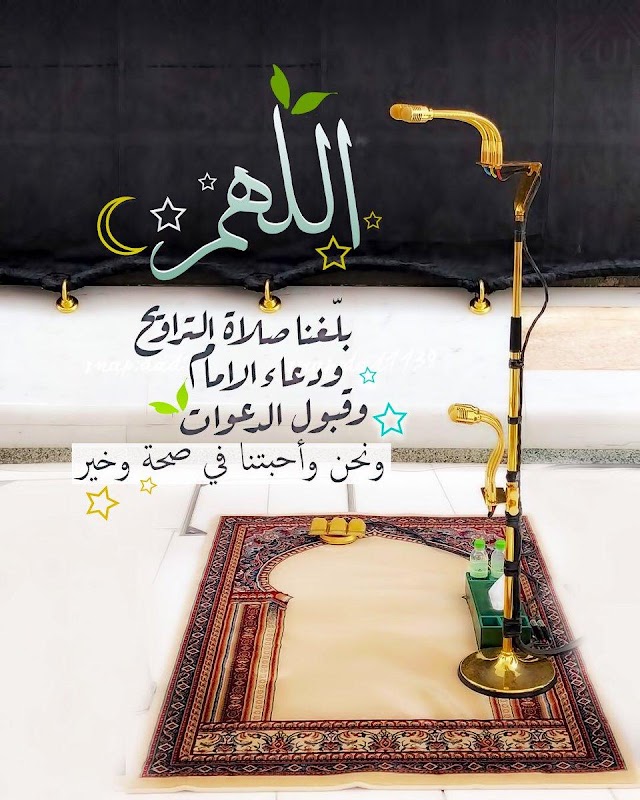 اللهم
بلّغنا صلاة التراويح
ودعاء الامام
وقبول الدعوات
ونحن وأحبتنا في صحة وخير